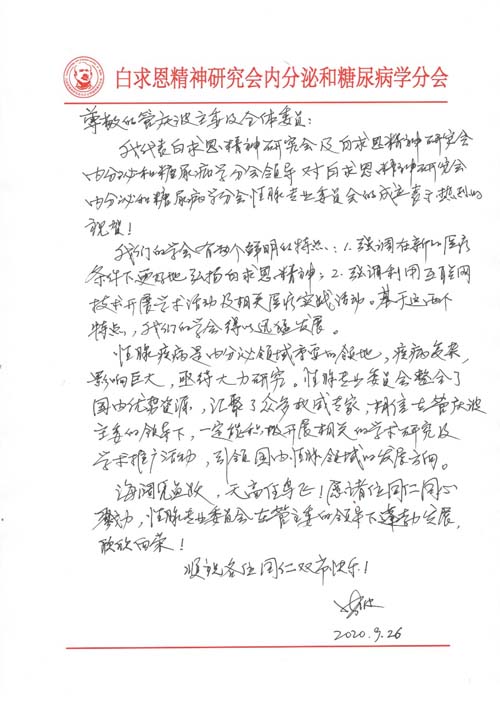 白求恩精神研究会内分泌和糖尿病学分会
尊敬的管庆波主委及全体委员：
我代表白求恩精神研究会及白求恩精神研究会
内分泌和糖尿病学分会领导对白求恩精神研究会
内分泌和糖尿病学分会性腺专业委员会的成立表示热烈的
祝贺！
我们的学会有两个鲜明的特点：1.强调在新的医疗
条件下更好地弘扬白求恩精神；2.强调利用互联网
技术开展学术活动及相关医疗实践活动。基于这两个
特点，我们的学会得以迅猛发展。
性腺疾病是内分泌领域重要的领地，疾病复杂，
影响巨大，亟待大力研究。性腺专业委员会整合了
国内优势资源，汇聚了众多权威专家，相信在管庆波
主委的领导下，一定能积极开展相关的学术研究及
学术推广活动，引领国内性腺领域的发展方向。
海阔凭鱼跃，天高任鸟飞！愿诸位同仁同心
戮力，性腺专业委员会在管主委的领导下蓬勃发展，
欣欣向荣！
顺祝各位同仁双节快乐！
2020.9.26